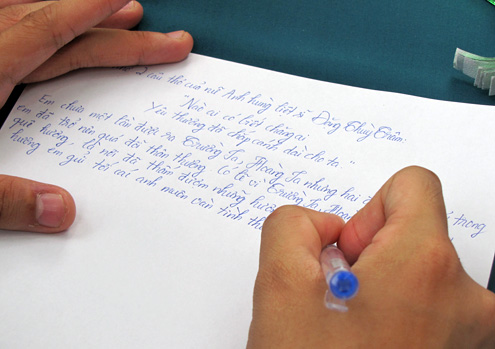 2 câu thơ của nữ Anh hùng liệt sĩ Đặng Thuỳ Trâm:
"Nào ai có biết chăng ai
Yêu thương đã chắp cánh dài cho ta"
Em chưa một lần được ra Trường Sa, Hoàng Sa nhưng hai trong
em đã trở nên quá đỗi thân thương. Có lẽ vì Trường Sa,
quê hương, bởi nó đã thấm đượm những
hương em gửi tới các anh muôn vàn tình